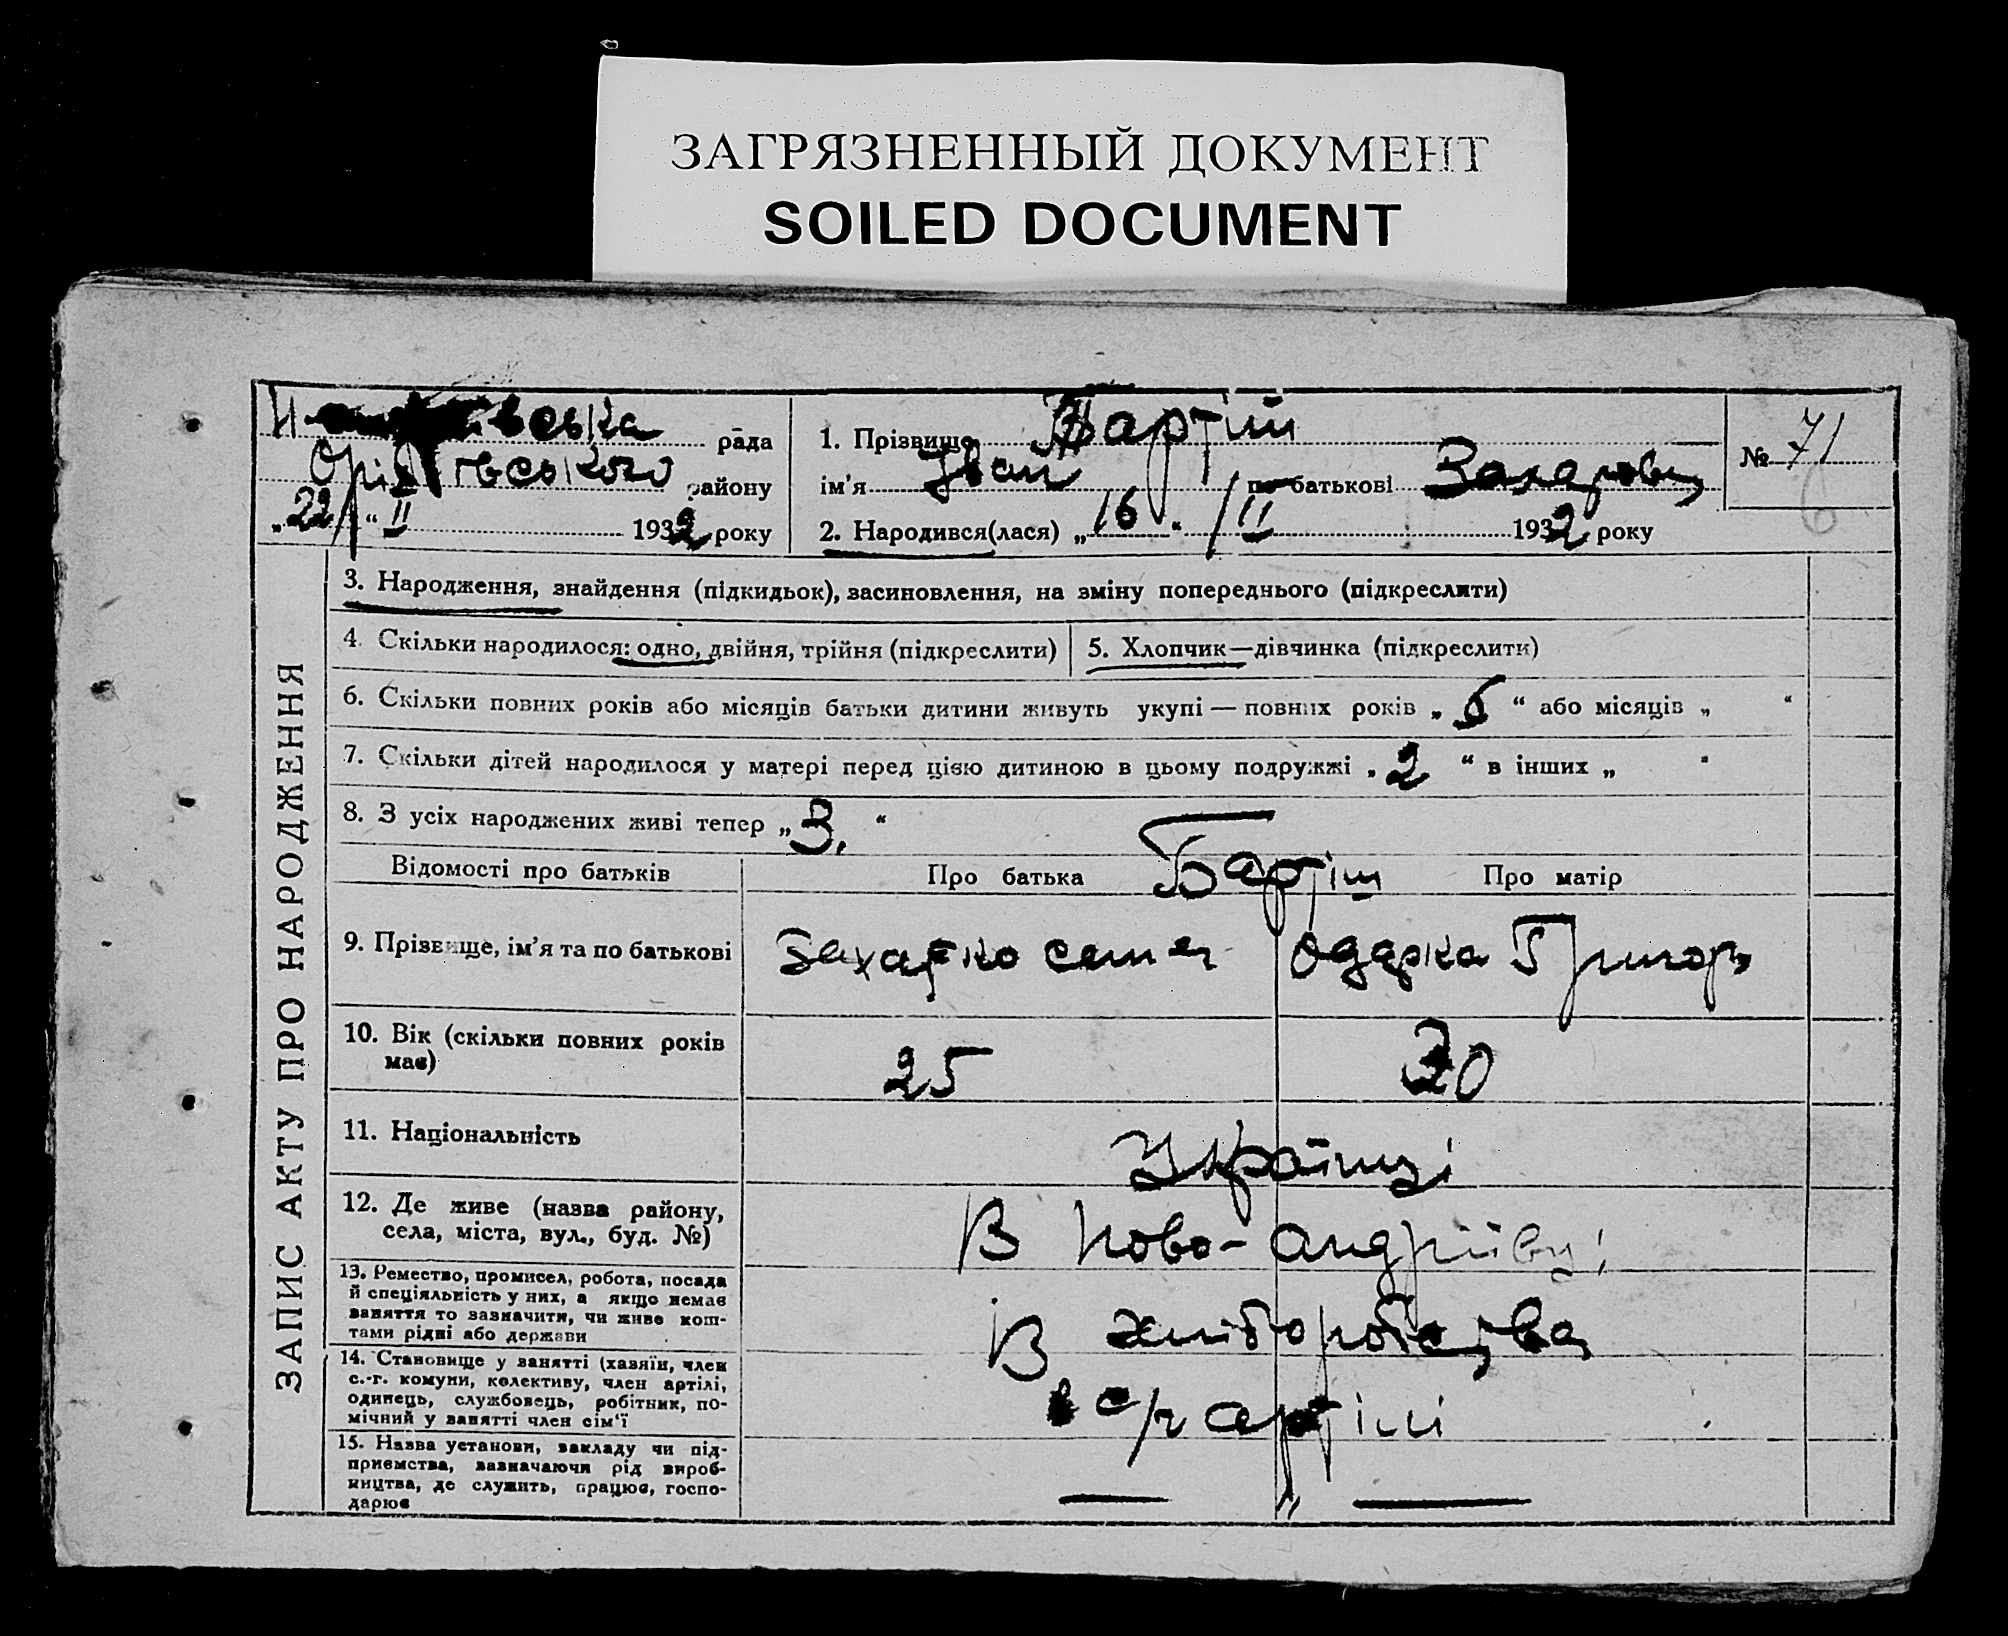 ЗАГРЯЗНЕННЫЙ ДОКУМЕНТ
SOILED DOCUMENT
рада
Оріхівського району
„22“ II 1932 року
1. Прізвище Бартіш
ім’я Іван по батькові Захарович
2. Народився(лася) „16“ / II 1932 року
№ 71
ЗАПИС АКТУ ПРО НАРОДЖЕННЯ
3. Народження, знайдення (підкидьок), засиновлення, на зміну попереднього (підкреслити)
4. Скільки народилося: одно, двійня, трійня (підкреслити)
5. Хлопчик—дівчинка (підкреслити)
6. Скільки повних років або місяців батьки дитини живуть укупі — повних років „6“ або місяців „ “
7. Скільки дітей народилося у матері перед цією дитиною в цьому подружжі „2“ в інших „ “
8. З усіх народжених живі тепер „3.“
Відомості про батьків
Про батька
Бартіш
Про матір
9. Прізвище, ім’я та по батькові
Захарко
Одарка Григор
10. Вік (скільки повних років
має)
25
30
11. Національність
Українці
12. Де живе (назва району,
села, міста, вул., буд. №)
В Ново-Андріївці
13. Ремество, промисел, робота, посада
й спеціяльність у них, а якщо немає
заняття то зазначити, чи живе кош-
тами рідні або держави
В хліборобства
14. Становище у занятті (хазяїн, член
с.-г. комуни, колективу, член артілі,
одинець, службовець, робітник, по-
мічний у занятті член сім’ї
в с/г артілі
15. Назва установи, закладу чи під-
приємства, зазначаючи рід вироб-
ництва, де служить, працює, госпо-
дарює
— „ —